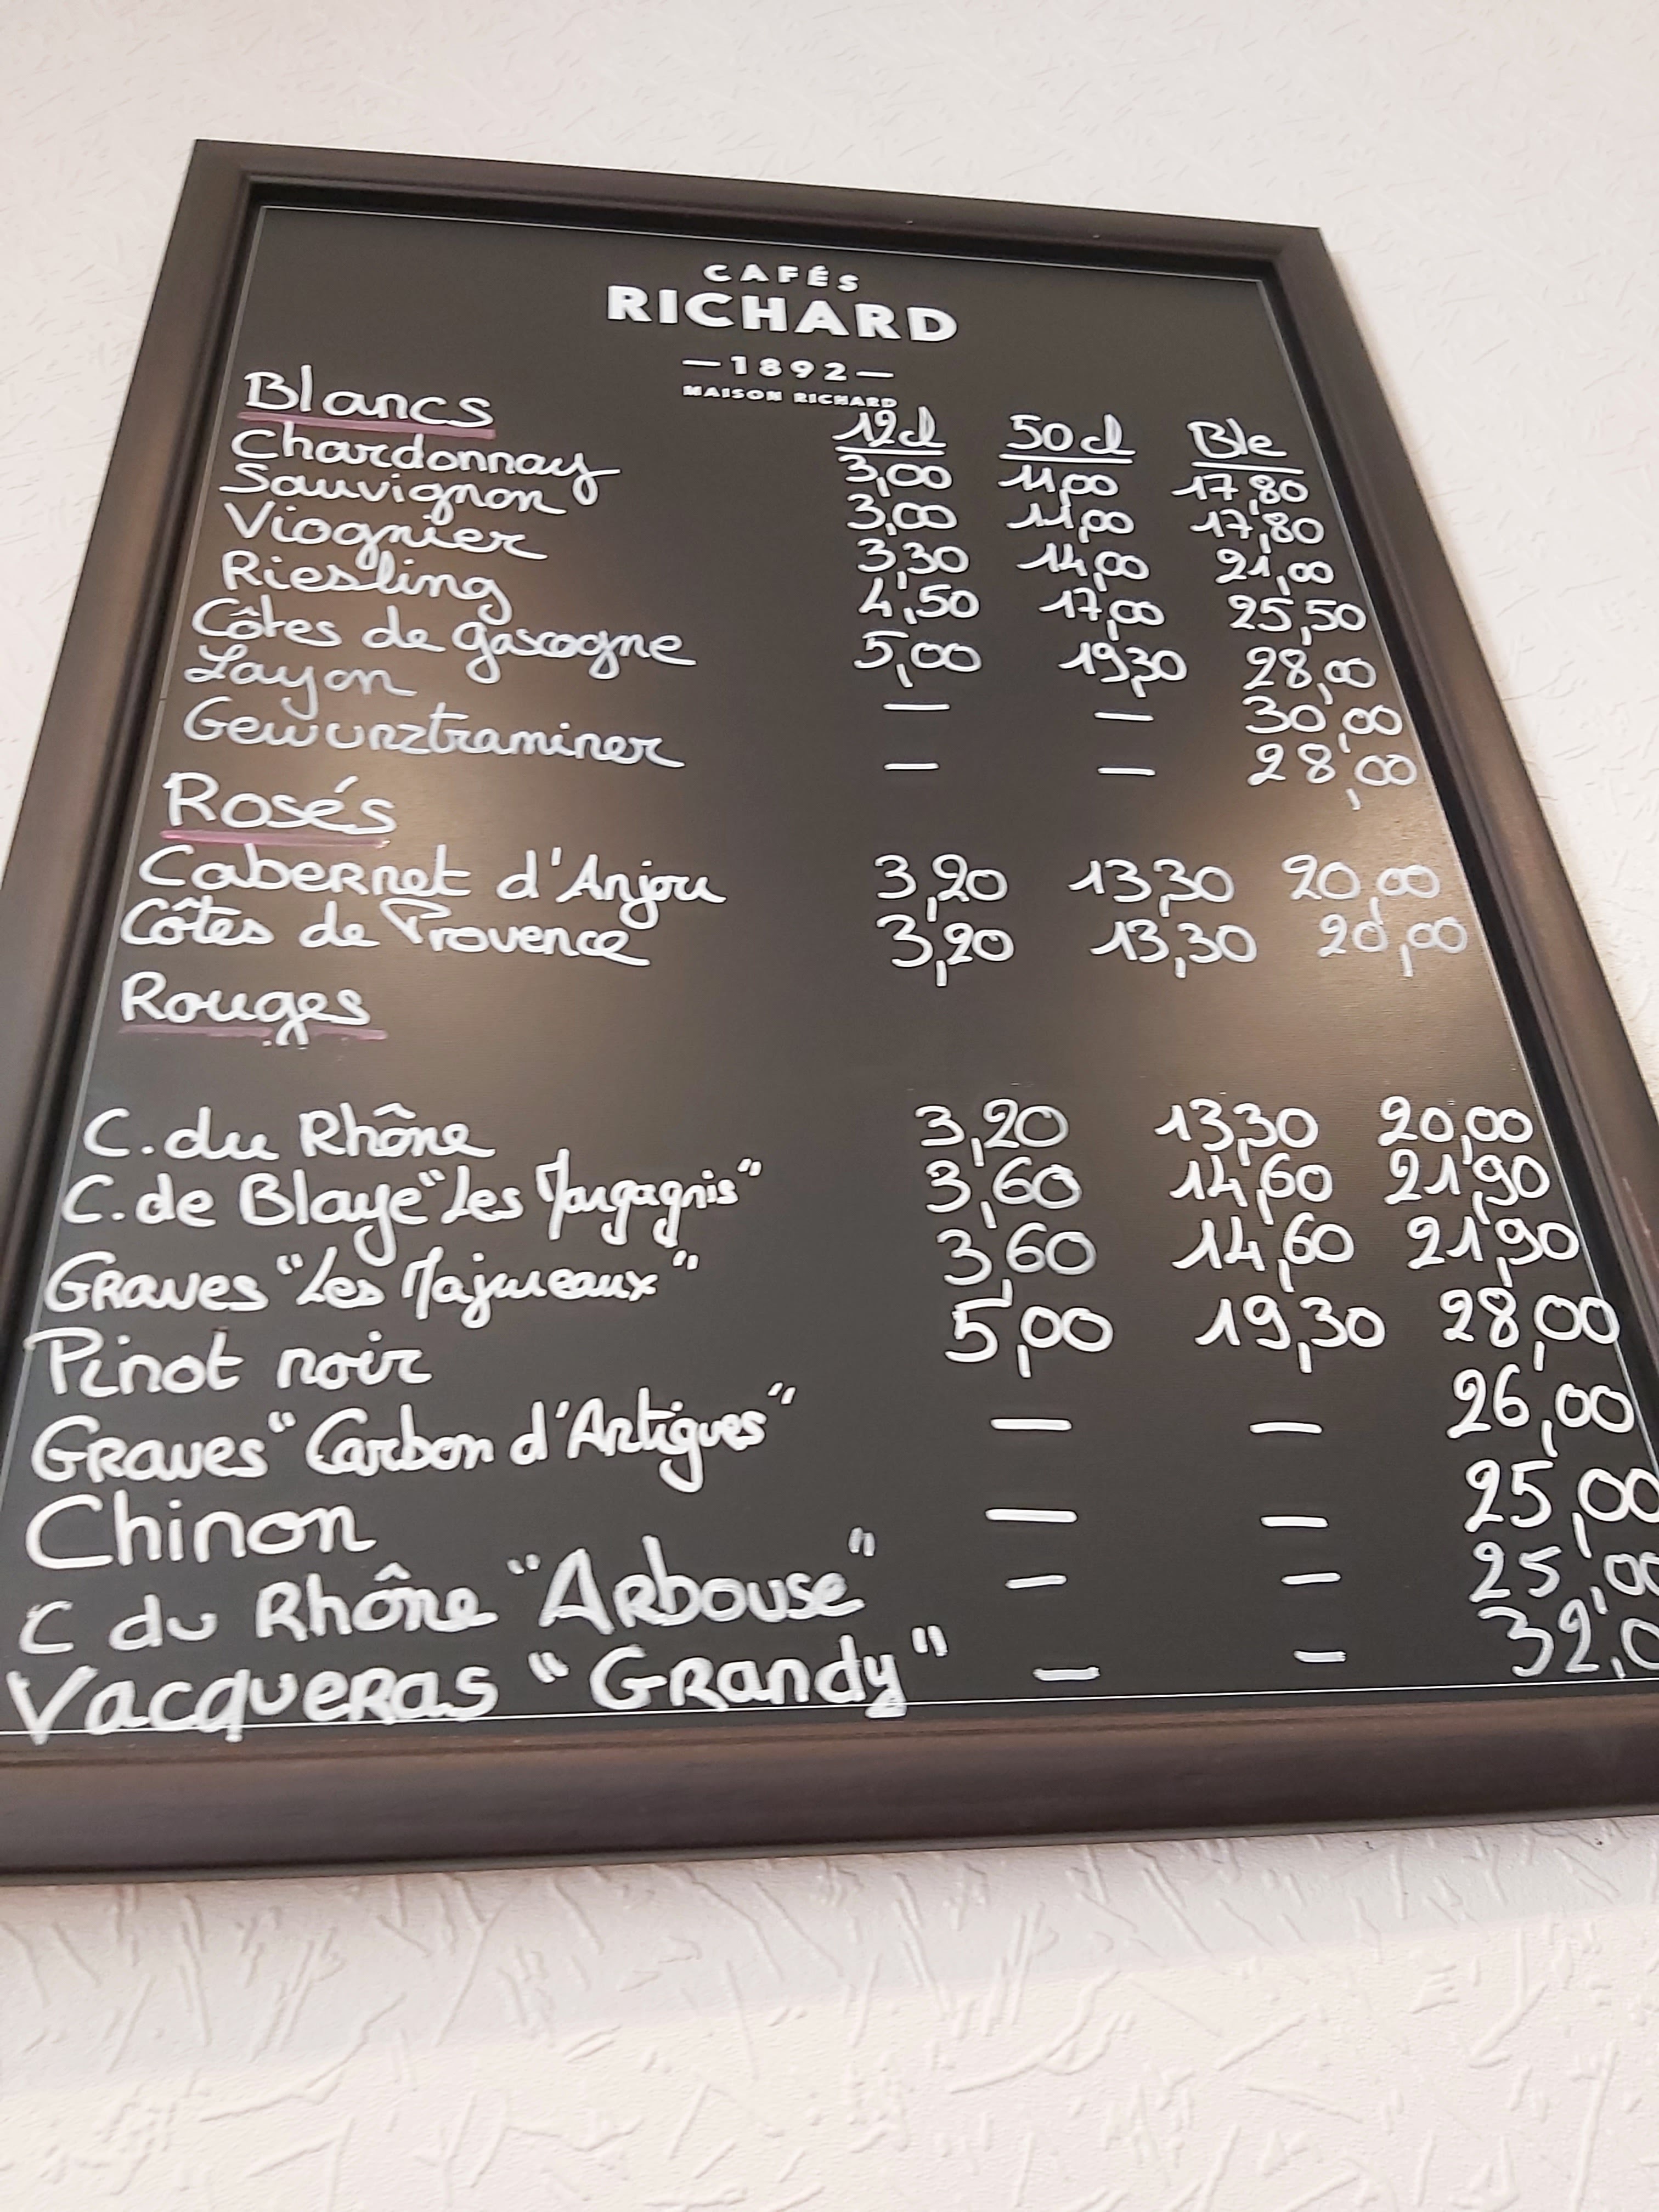 CAFÉS
RICHARD
—1892—
MAISON RICHARD
Blancs 12cl 50cl Ble
Chardonnay 3,00 11,00 17,80
Sauvignon 3,00 11,00 17,80
Viognier 3,30 14,00 21,00
Riesling 4,50 17,00 25,50
Côtes de gascogne 5,00 19,30 28,00
Layon — — 30,00
Gewurztraminer — — 28,00
Rosés
Cabernet d'Anjou 3,20 13,30 20,00
Côtes de Provence 3,20 13,30 20,00
Rouges
C. du Rhône 3,20 13,30 20,00
C. de Blaye "Les" 3,60 14,60 21,90
Graves "Les Majureaux" 3,60 14,60 21,90
Pinot noir 5,00 19,30 28,00
Graves "Carbon d'Artigues" — — 26,00
Chinon — — 25,00
C du Rhône "Arbouse" — — 25,00
Vacqueras "Grandy" — — 32,0